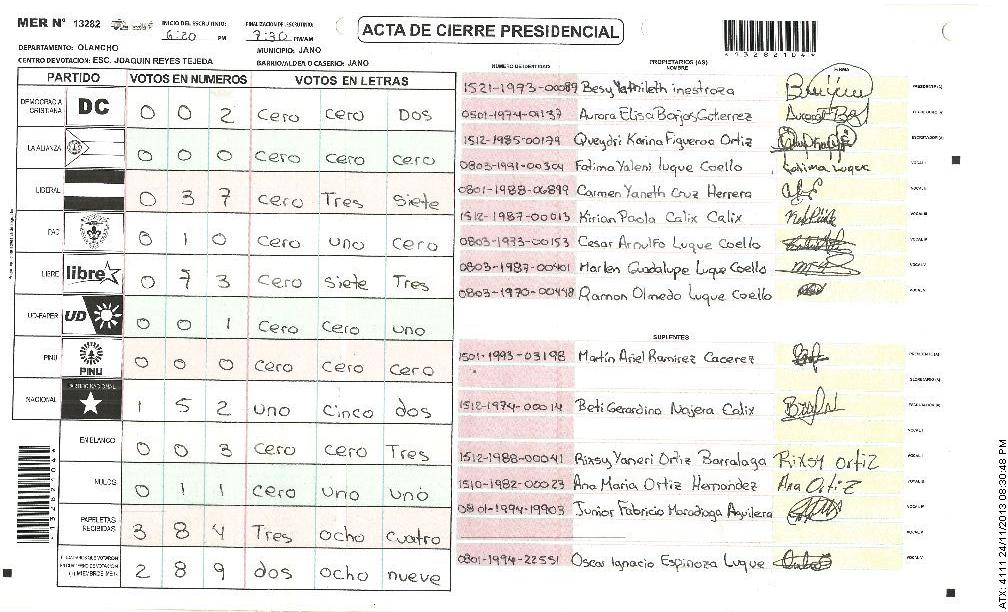 MER N° 13282
INICIO DEL ESCRUTINIO: 6:20 PM
FINALIZACION DEL ESCRUTINIO: 7:30 PM/AM
ACTA DE CIERRE PRESIDENCIAL
132821044
DEPARTAMENTO: OLANCHO
MUNICIPIO: JANO
CENTRO DE VOTACION: ESC. JOAQUIN REYES TEJEDA
BARRIO/ALDEA O CASERIO: JANO
PARTIDO VOTOS EN NUMEROS VOTOS EN LETRAS
DEMOCRACIA CRISTIANA DC 0 0 2 cero cero Dos
LA ALIANZA 0 0 0 cero cero cero
LIBERAL 0 3 7 cero Tres siete
PAC 0 1 0 cero uno cero
LIBRE libre 0 7 3 cero siete Tres
UD-FAPER UD 0 0 1 cero cero uno
PINU PINU 0 0 0 cero cero cero
NACIONAL PARTIDO NACIONAL 1 5 2 uno cinco dos
EN BLANCO 0 0 3 cero cero Tres
NULOS 0 1 1 cero uno uno
PAPELETAS RECIBIDAS 3 8 4 Tres ocho cuatro
2 8 9 dos ocho nueve
NUMERO DE IDENTIDAD
PROPIETARIOS (AS)
NOMBRE
FIRMA
1521-1973-00089 Besy Yathileth inestroza
0501-1974-01137 Aurora Elisa Borjos Goterrez
1512-1985-00179 Queydri Karina Figueroa Ortiz
0803-1991-00304 Fatima Yaleni Luque Coello Fatima Luque
0801-1988-06899 Carmen Yaneth Cruz Herrera
1512-1987-00013 Kirian Paola Calix Calix
0803-1973-00153 Cesar Arnulfo Luque Coello
0803-1987-00401 Marlen Guadalupe Luque Coello
0803-1970-00448 Ramon Olmedo Luque Coello
SUPLENTES
1501-1993-03198 Martin Ariel Ramirez Cacerez
1512-1974-00014 Beti Gerardina Najera Calix
1512-1988-00041 Rixsy Yaneri Ortiz Barralaga Rixsy ortiz
1510-1982-00023 Ana Maria Ortiz Hernandez Ana Ortiz
0801-1994-19903 Junior Fabricio Maradiaga Aguilera
0801-1994-22551 Oscar Ignacio Espinoza Luque
ATX: 4111 24/11/2013 08:30:48 PM